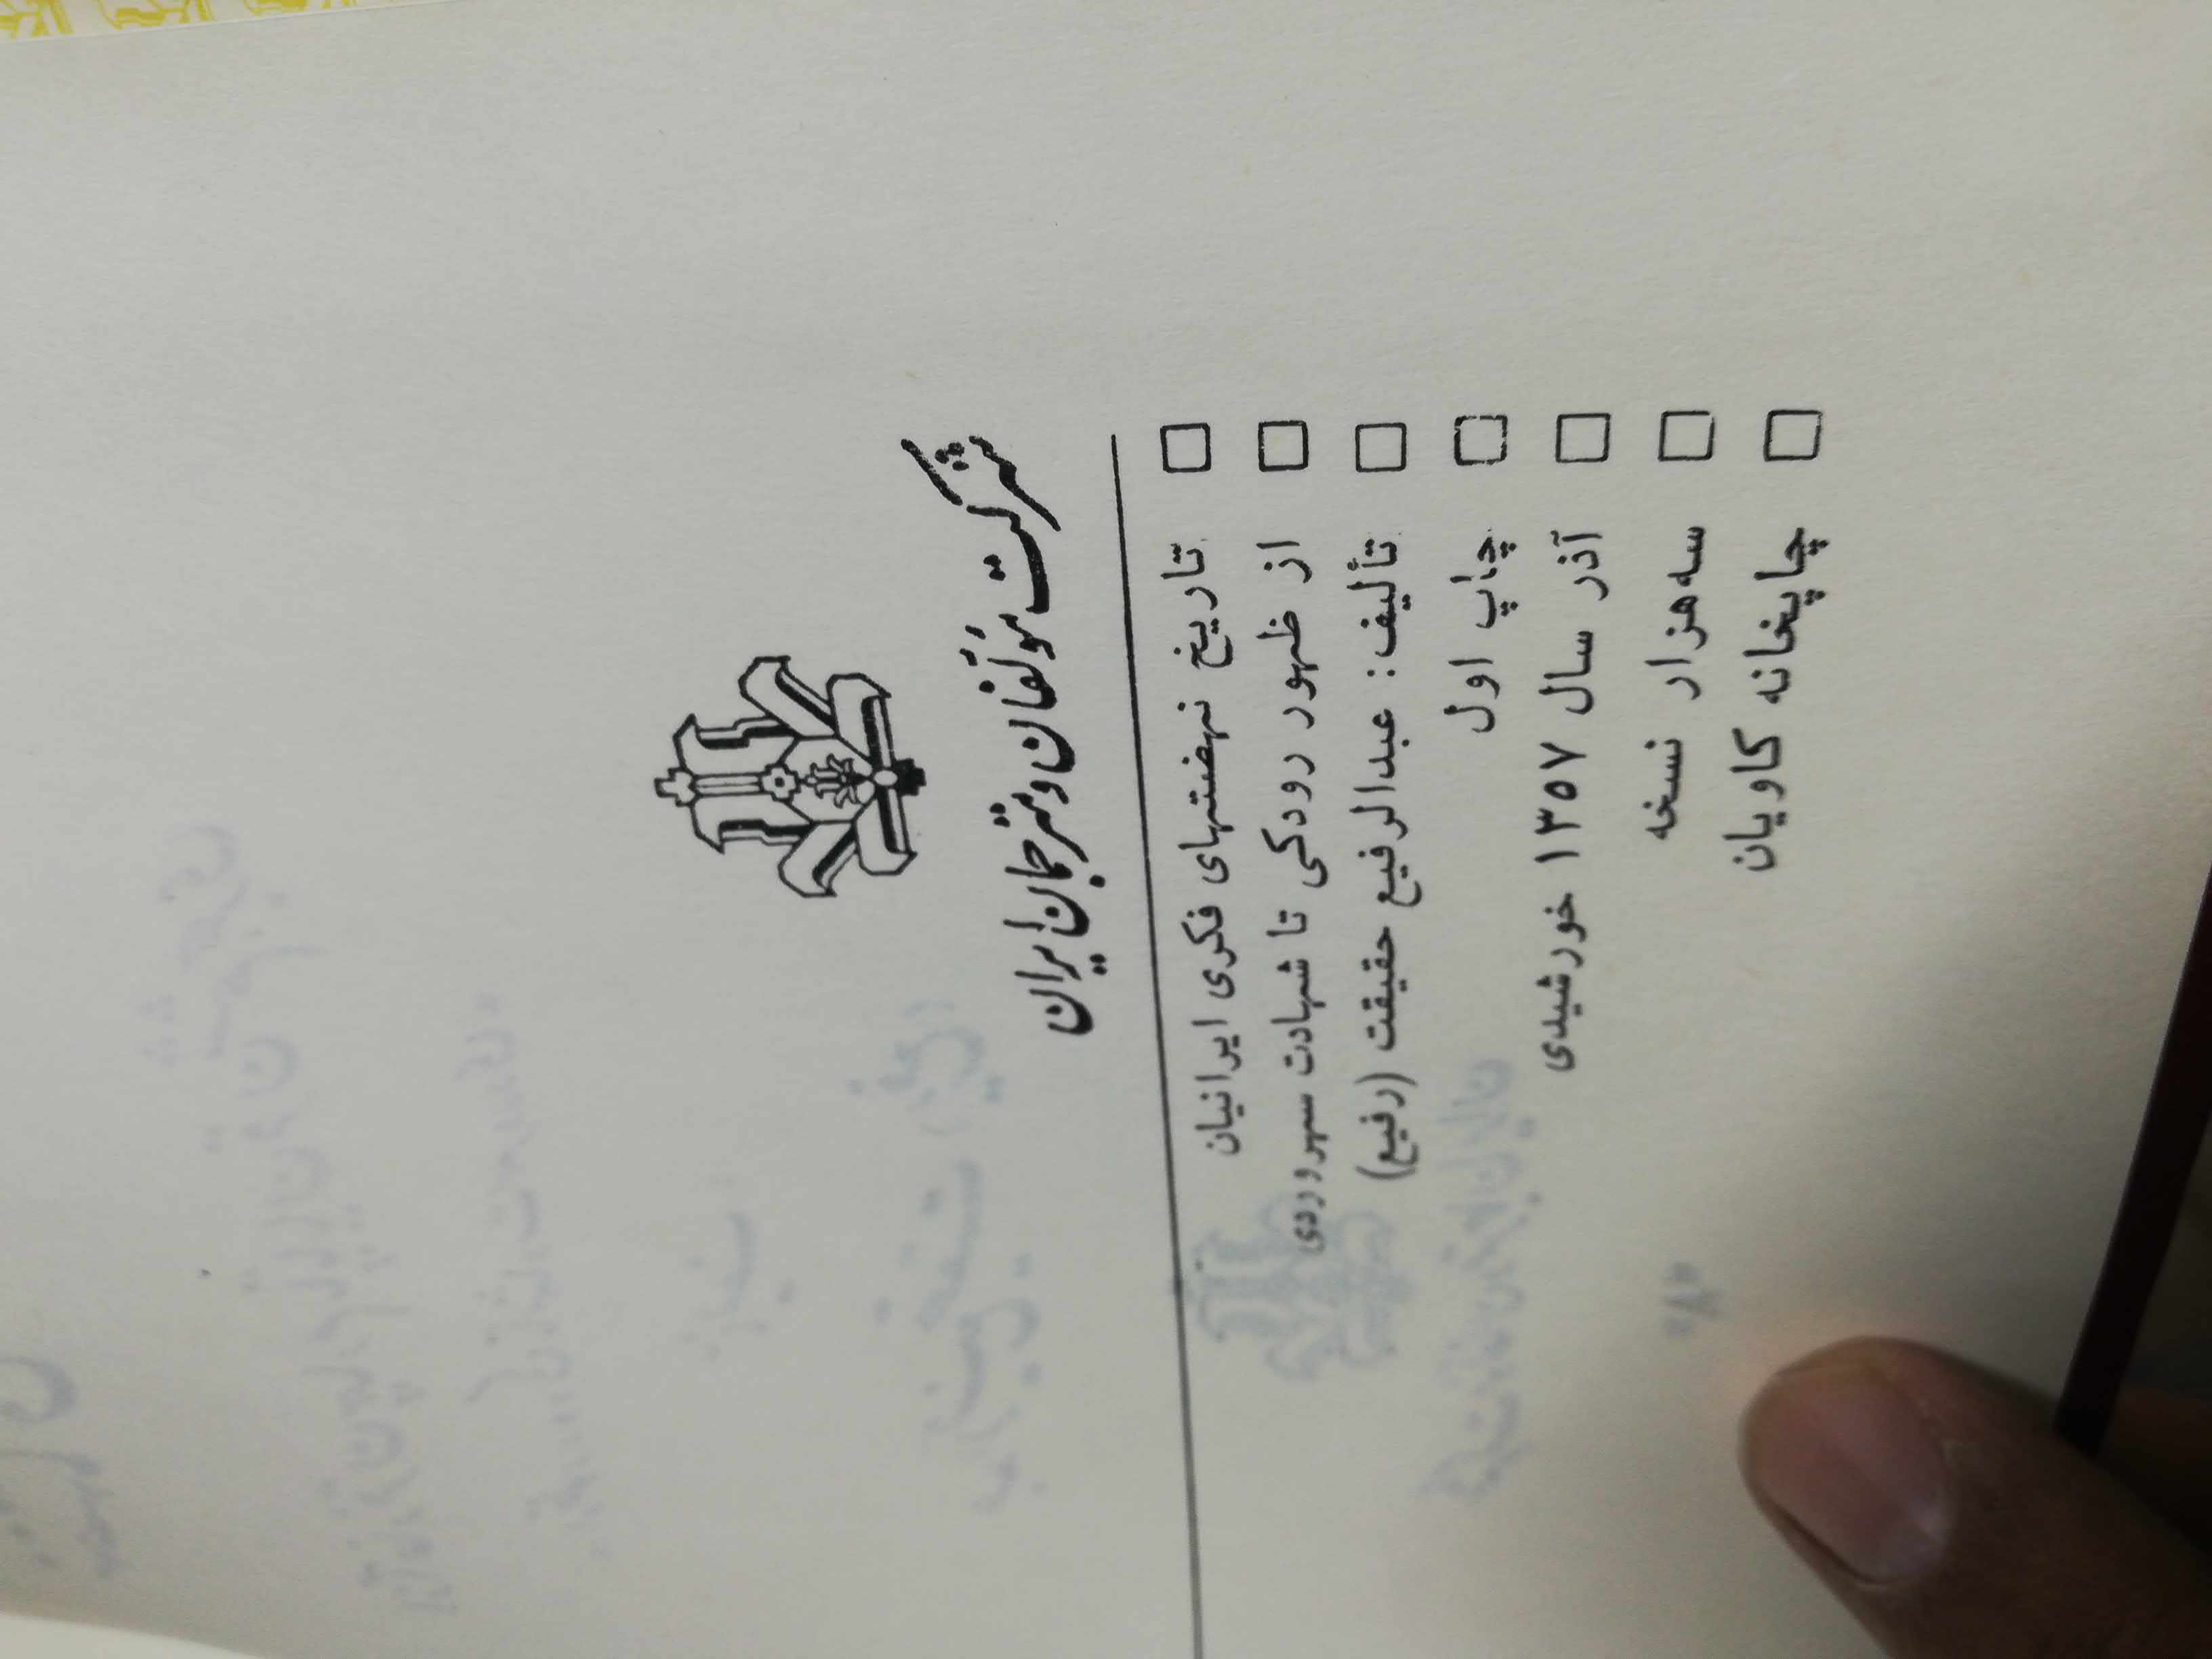 شرکت مؤلفان و مترجمان ایران
تاریخ نهضتهای فکری ایرانیان
از ظهور رودکی تا شهادت سهروردی
تألیف: عبدالرفیع حقیقت (رفیع)
چاپ اول
آذر سال ۱۳۵۷ خورشیدی
سه هزار نسخه
چاپخانه کاویان